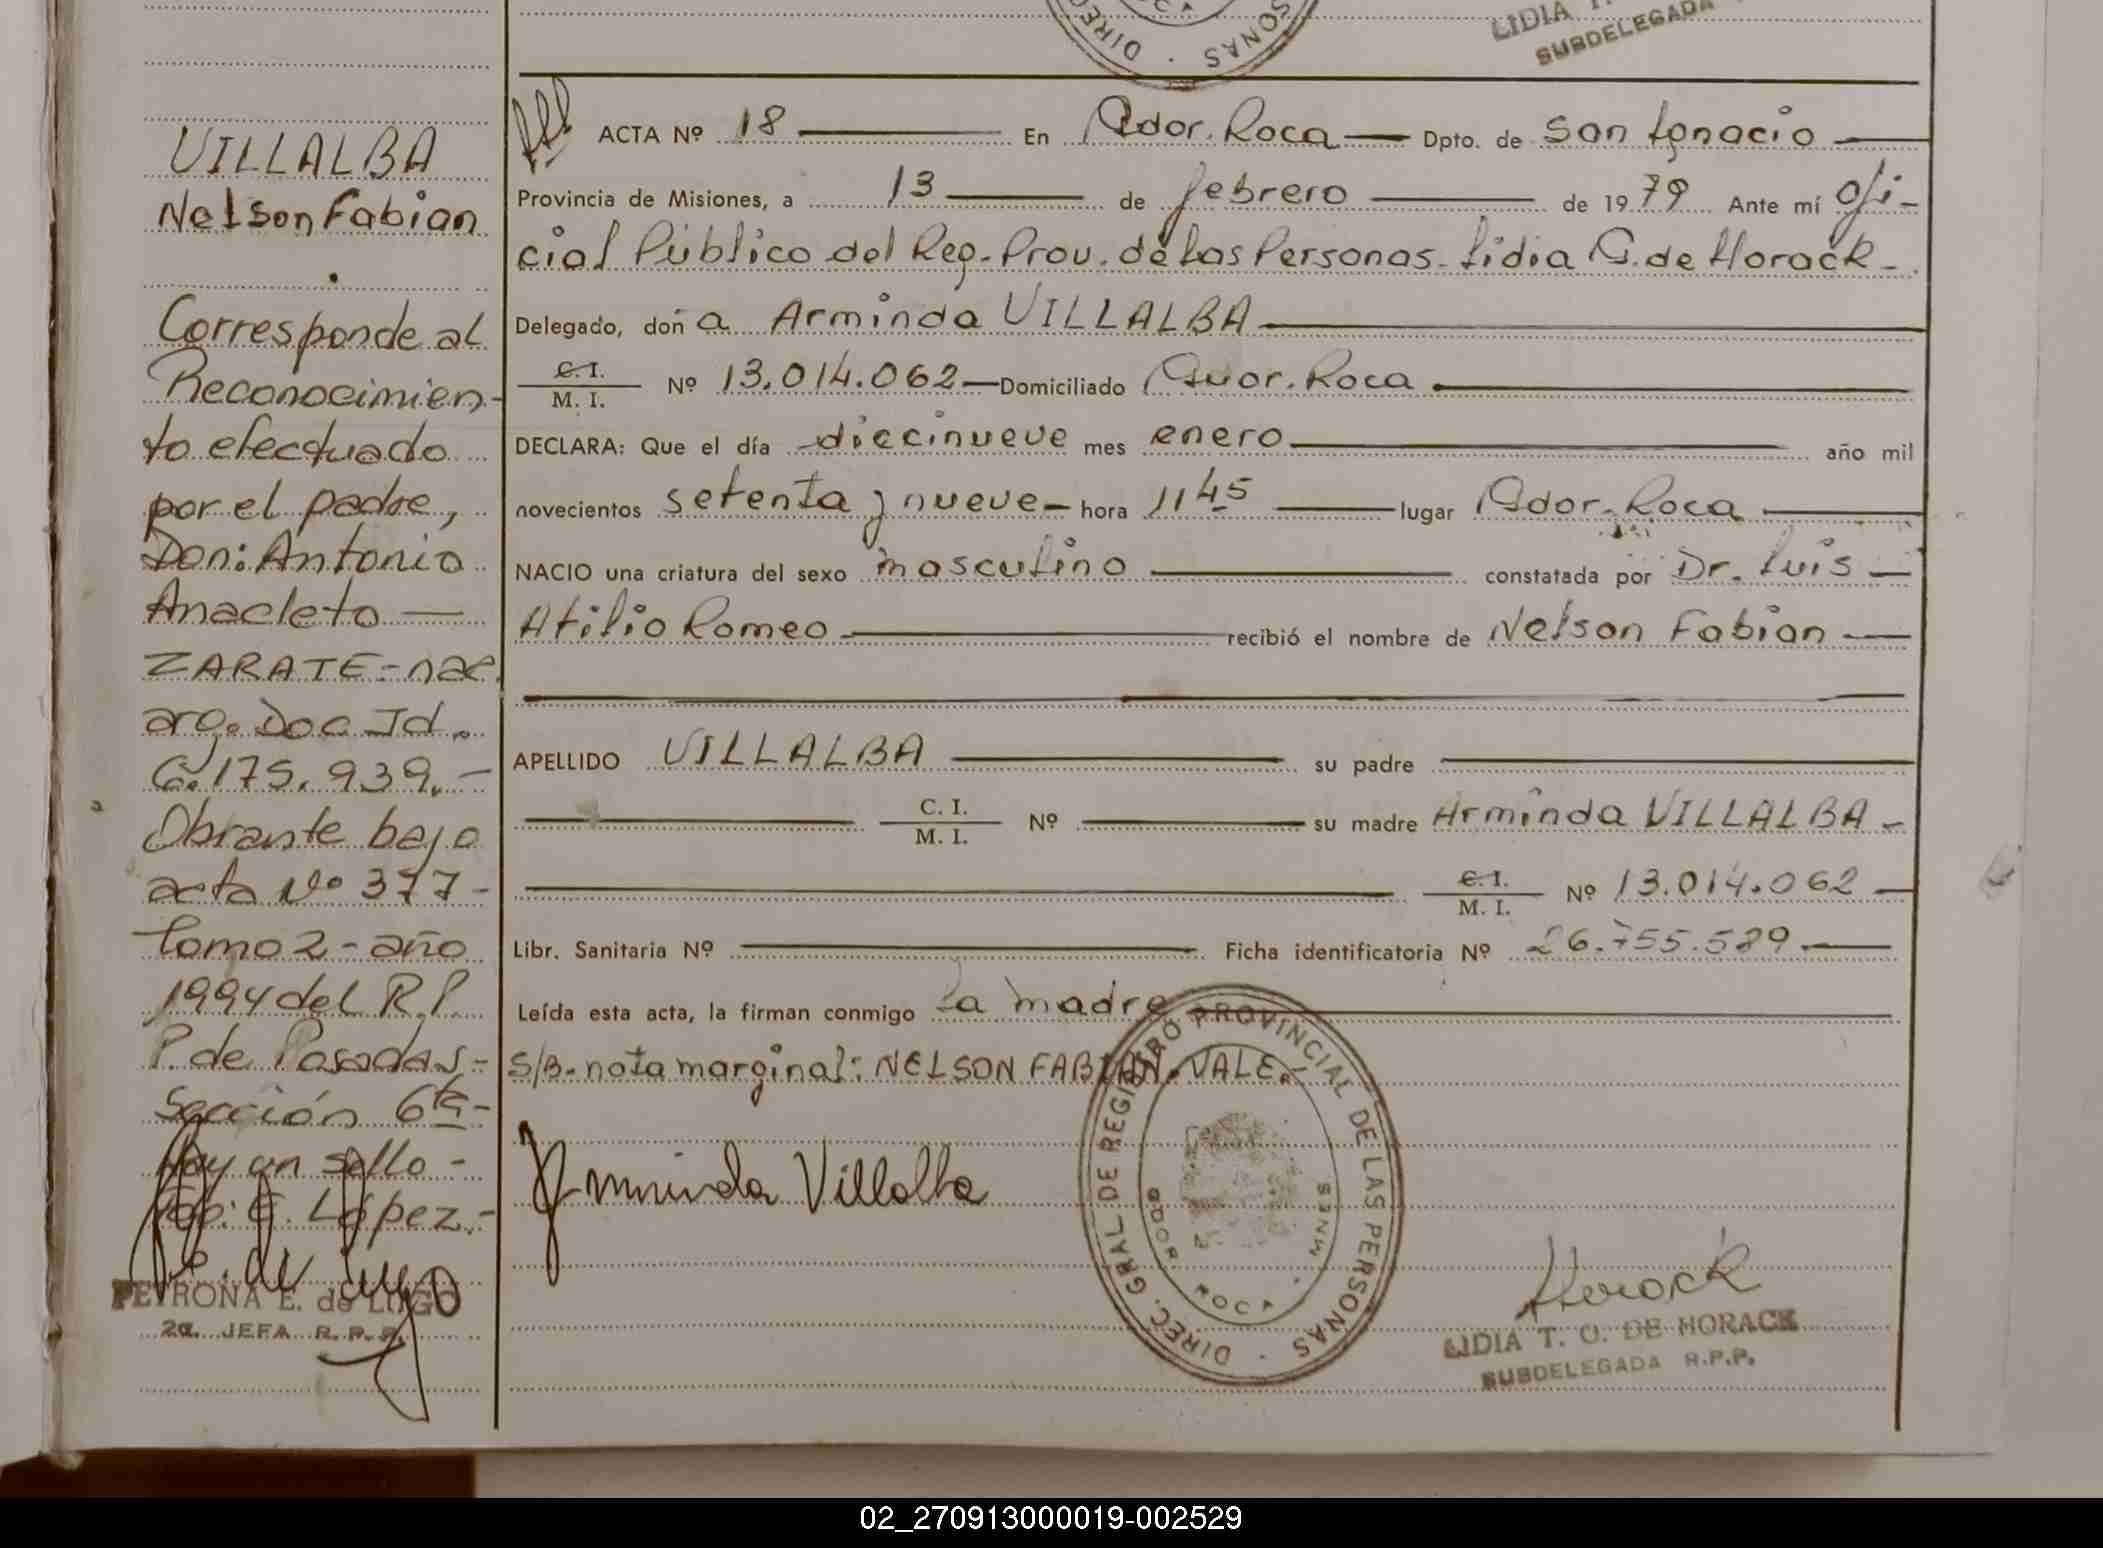 DIREC
SONAS
ROCA
LIDIA T.
SUBDELEGADA
VILLALBA
Nelson Fabian
Corresponde al
Reconocimien-
to efectuado
por el padre,
Don: Antonio
Anacleto —
ZARATE - nac.
arg. Doc Id.
C. 175.939.-
Obrante bajo
acta Nº 377-
Tomo 2 - año
1994 del R.P.
P. de Posadas -
Sección 6ta-
Hay un sello -
Fdo: E. López.-
PETRONA E. de LUGO
2a. JEFA R.P.P.
ACTA Nº 18 — En Gdor. Roca — Dpto. de San Ignacio —
Provincia de Misiones, a 13 — de febrero — de 1979 Ante mí Ofi-
cial Público del Reg. Prov. de las Personas - Lidia C. de Horack -
Delegado, doña Arminda VILLALBA —
C. I.
M. I. Nº 13.014.062 — Domiciliado Gdor. Roca —
DECLARA: Que el día diecinueve mes enero — año mil
novecientos setenta y nueve — hora 11 45 — lugar Gdor. Roca —
NACIO una criatura del sexo masculino — constatada por Dr. Luis —
Atilio Romeo — recibió el nombre de Nelson Fabian —
APELLIDO VILLALBA — su padre —
— C. I.
M. I. Nº — su madre Arminda VILLALBA -
— C. I.
M. I. Nº 13.014.062 —
Libr. Sanitaria Nº — Ficha identificatoria Nº 26.755.589 —
Leída esta acta, la firman conmigo la madre —
S/B. nota marginal: NELSON FABIAN. VALE.
Arminda Villalba
DIREC. GRAL DE REGISTRO PROVINCIAL DE LAS PERSONAS
GDOR ROCA MNES
Horack
LIDIA T. C. DE HORACK
SUBDELEGADA R.P.P.
02_270913000019-002529